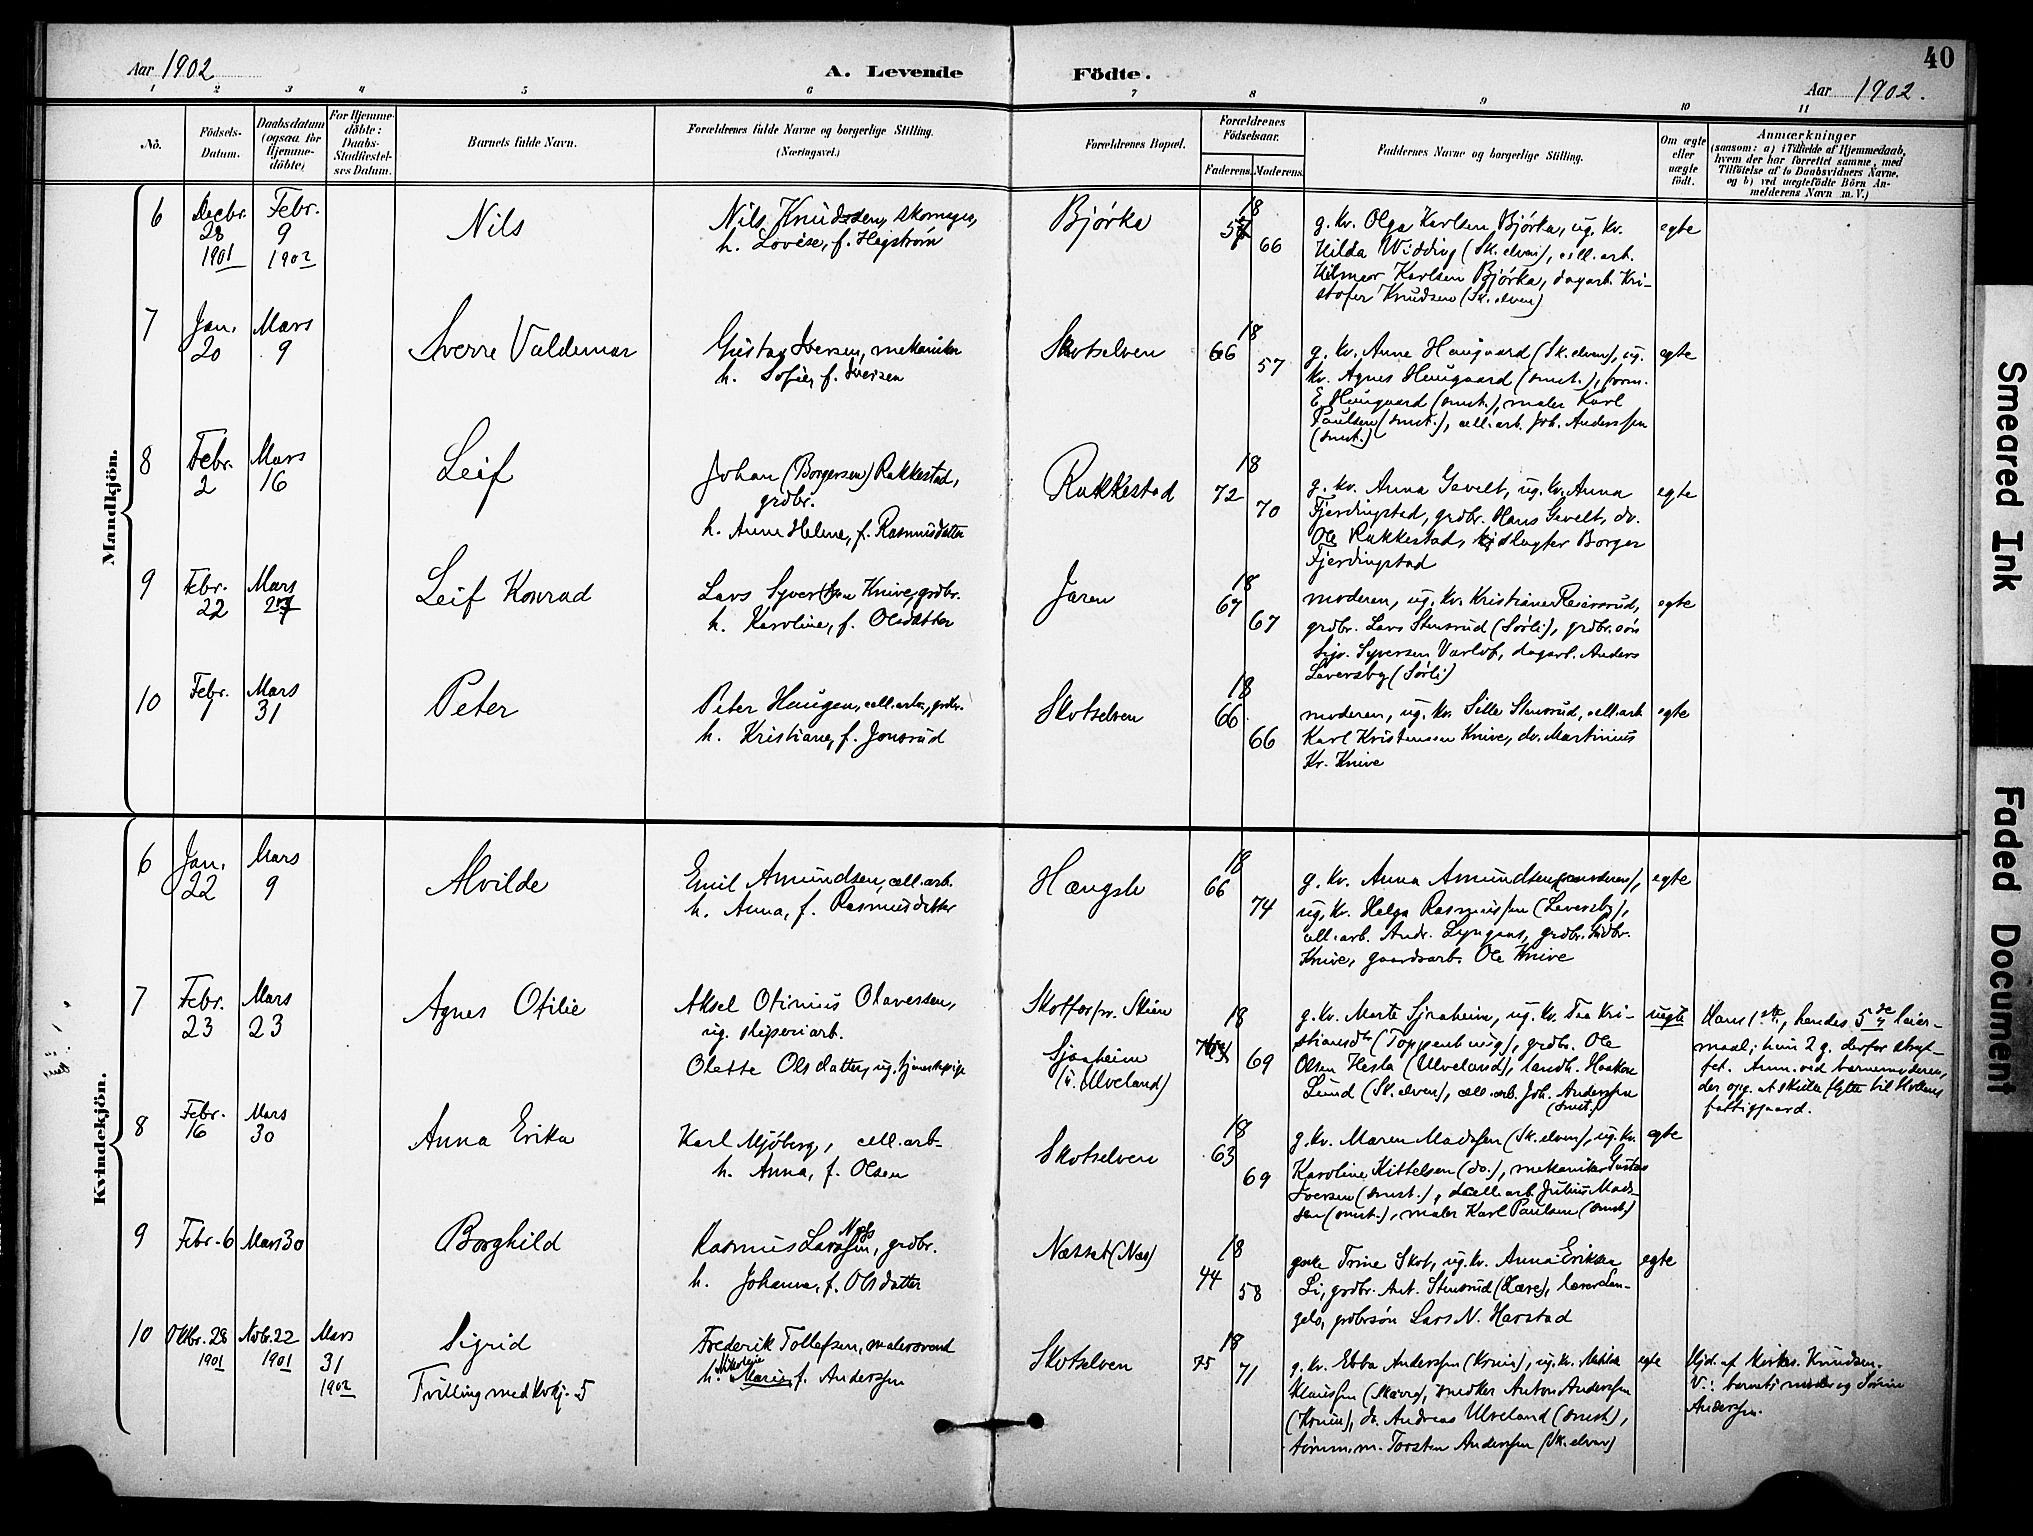 Aar 1902
A. Levende
Födte.
40
Aar 1902.
1 2 3 4 5 6 7 8 9 10 11
No.
Födsels-
Datum.
Daabsdatum
(ogsaa for
Hjemme-
döbte)
For Hjemme-
döbte:
Daabs-
Stadfæstel-
ses Datum.
Barnets fulde Navn.
Forældrenes fulde Navne og borgerlige Stilling.
(Næringsvei.)
Forældrenes Bopæl.
Forældrenes
Födselsaar.
Faderens. Moderens.
Faddernes Navne og borgerlige Stilling.
Om ægte
eller
uægte
födt.
Anmærkninger
(saasom: a) i Tilfælde af Hjemmedaab,
hvem der har forrettet samme, med
Tilföielse af to Daabsvidners Navne.
og b) ved uægtefödte Börn An-
melderens Navn m. V.)
Mandkjön.
6
Decbr.
28
1901
Febr.
9
1902
Nils
Nils Knudssen, skomager,
h. Lovise, f. Hegstrøm
Bjørka
18
66
g. kv. Olga Karlsen Bjørka, ug. kv.
Hilda Widding (Sk.elven), cell.arb.
Hilmar Karlsen Bjørka, dagarb. Kri-
stofer Knudsen (Sk.elven)
egte
7
Jan.
20
Mars
9
Sverre Valdemar
Gustav Iversen, mekaniker
h. Sofie, f. Iversen
Skotselven
18
66
57
g. kv. Anne Haugaard (Sk.elven), ug.
kv. Agnes Haugaard (smst.), form.
E. Haugaard (smst.), maler Karl
Paulsen (smst.), cell.arb. Joh. Anderssen
(smst.)
egte
8
Febr.
2
Mars
16
Leif
Johan (Borgersen) Rakkestad,
grdbr.
h. Anne Helene, f. Rasmusdatter
Rakkestad
18
72
70
g. kv. Anna Gevelt, ug. kv. Anna
Fjerdingstad, grdbr. Hans Gevelt, do.
Ole Rakkestad, slagter Borger
Fjerdingstad
egte
9
Febr.
22
Mars
27
Leif Konrad
Lars Syversen Knive, grdbr.
h. Karoline, f. Olsdatter
Jaren
18
67
67
moderen, ug. kv. Kristiane Reiersrud,
grdbr. Lars Stensrud (Sørli), grdbr.søn
Sigv. Syversen Varlof, dagarb. Anders
Leversby (Sørli)
egte
10
Febr.
1
Mars
31
Peter
Peter Haugen, cell.arb., grdbr.
h. Kristiane, f. Jonsrud
Skotselven
18
66
66
moderen, ug. kv. Sille Stensrud, cell.arb.
Karl Kristensen Knive, do. Martinius
Kr. Knive
egte
Kvindekjön.
6
Jan.
22
Mars
9
Alvilde
Emil Amundsen, cell.arb.
h. Anna, f. Rasmusdatter
Hængsle
18
66
74
g. kv. Anna Amundsen,
ug. kv. Helga Rasmussen (Leversby),
cell.arb. Andr. Lyngaas, grdbr. Gudbr.
Knive, gaardsarb. Ole Knive
egte
7
Febr.
23
Mars
23
Agnes Otilie
Aksel Otinius Olavessen,
ug. sliperiarb.
Olette Olsdatter, ug. tjenestepige
Skotfos pr. Skien
Sjaaheim
(u. Ulveland)
18
69
g. kv. Marte Sjaaheim, ug. kv. Tea Kri-
stiansdt. (Toppenbaug), grdbr. Ole
Olsen Hesla (Ulveland), landh. Haakon
Lund (Sk.elven), cell.arb. Joh. Anderssen
(smst.)
uegte
Hans 1ste, hendes 5te leier-
maal; hun 2 g. derfor straf-
fet. Anm. ved barnemoderen,
der opg. at skulle flytte til Holens
fattiggaard.
8
Febr.
16
Mars
30
Anna Erika
Karl Mjøberg, cell.arb.
h. Anna, f. Olsen
Skotselven
18
63
69
g. kv. Maren Madssen (Sk.elven), ug. kv.
Karoline Kittelsen (do.), mekaniker Gustav
Iversen (smst.), cell.arb. Julius Mads-
sen (smst.), maler Karl Paulsen (smst.)
egte
9
Febr. 6
Mars 30
Borghild
Rasmus Larssen, grdbr.
h. Johanne, f. Olsdatter
Næsset (Næs)
18
44
58
gske Trine Skot, ug. kv. Anna Eriksen
Li, grdbr. Ant. Stensrud, lærer Lan-
gelo, grdbrsøn Lars N. Harstad
egte
10
Oktbr. 28
1901
Novbr. 22
1901
Mars
31
1902
Sigrid
Tvilling med Kvkj. 5
Frederik Tollefsen, malersvend
h. Nikoleie Marie, f. Anderssen
Skotselven
18
75
71
g. kv. Ebba Anderssen, ug. kv. Matilda
Klaussen, snedker Anton Anderssen
do. Andreas Ulveland (smst.),
tømm.m. Torsten Anderssen (Sk.elven)
egte
Hjd. af kirkes. Knudsen.
V.: barnets moder og Sørine
Anderssen.
Smeared Ink
Faded Document